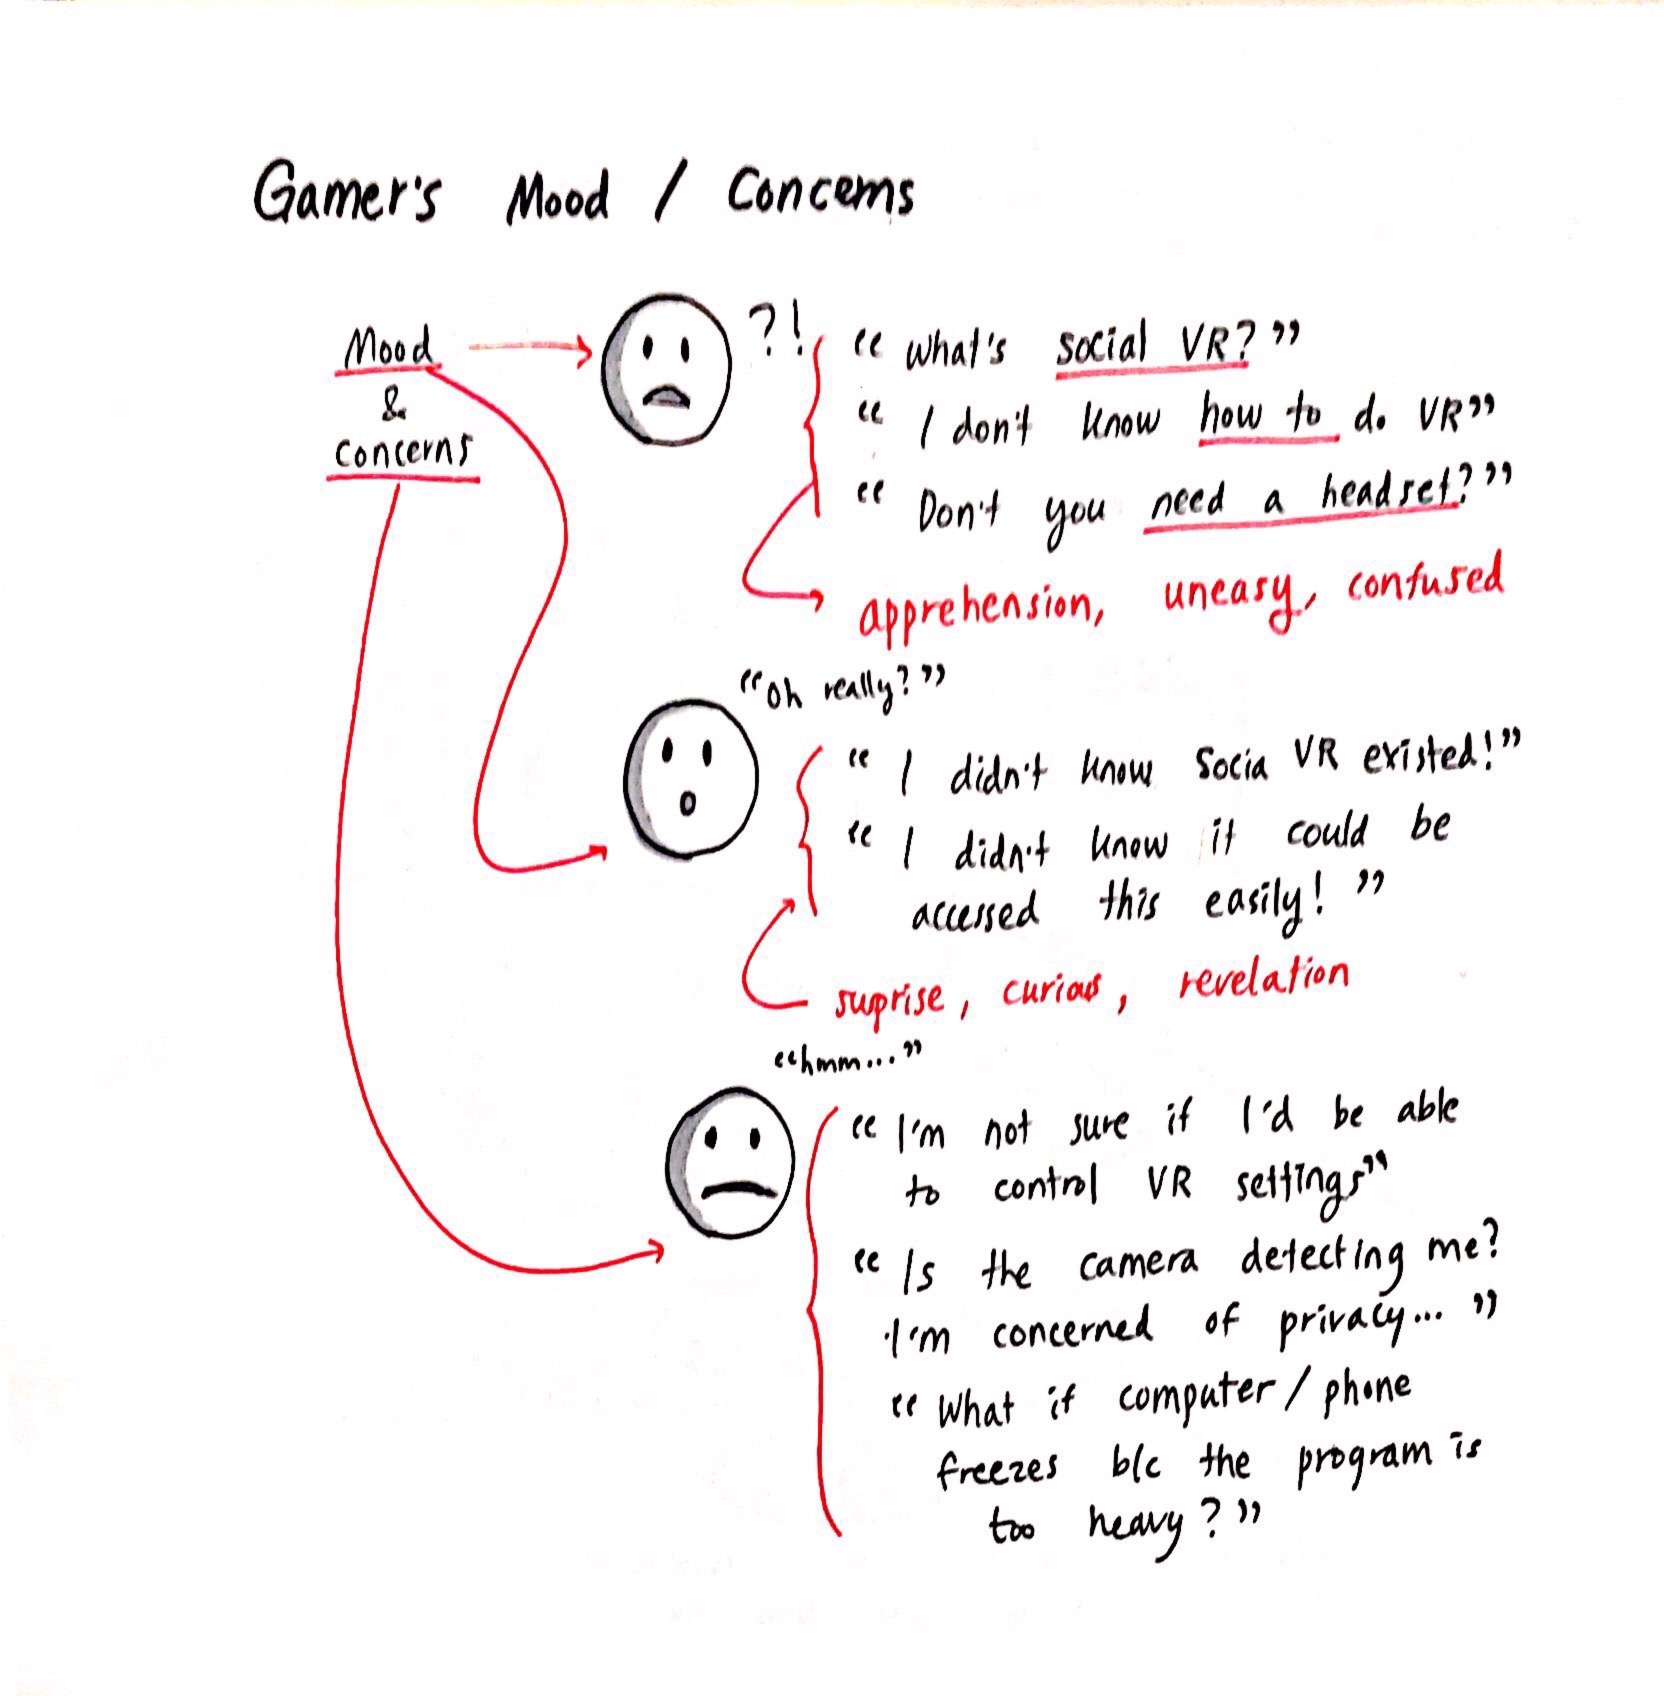 Gamer's Mood / Concerns
Mood
&
concerns
?!
“ What's social VR? ”
“ I don't know how to do VR”
“ Don't you need a headset? ”
apprehension, uneasy, confused
“Oh really? ”
“ I didn't know Socia VR existed! ”
“ I didn't know it could be
accessed this easily! ”
suprise, curious, revelation
“hmm...”
“ I'm not sure if I'd be able
to control VR settings”
“ Is the camera detecting me?
I'm concerned of privacy... ”
“ What if computer / phone
freezes b/c the program is
too heavy? ”